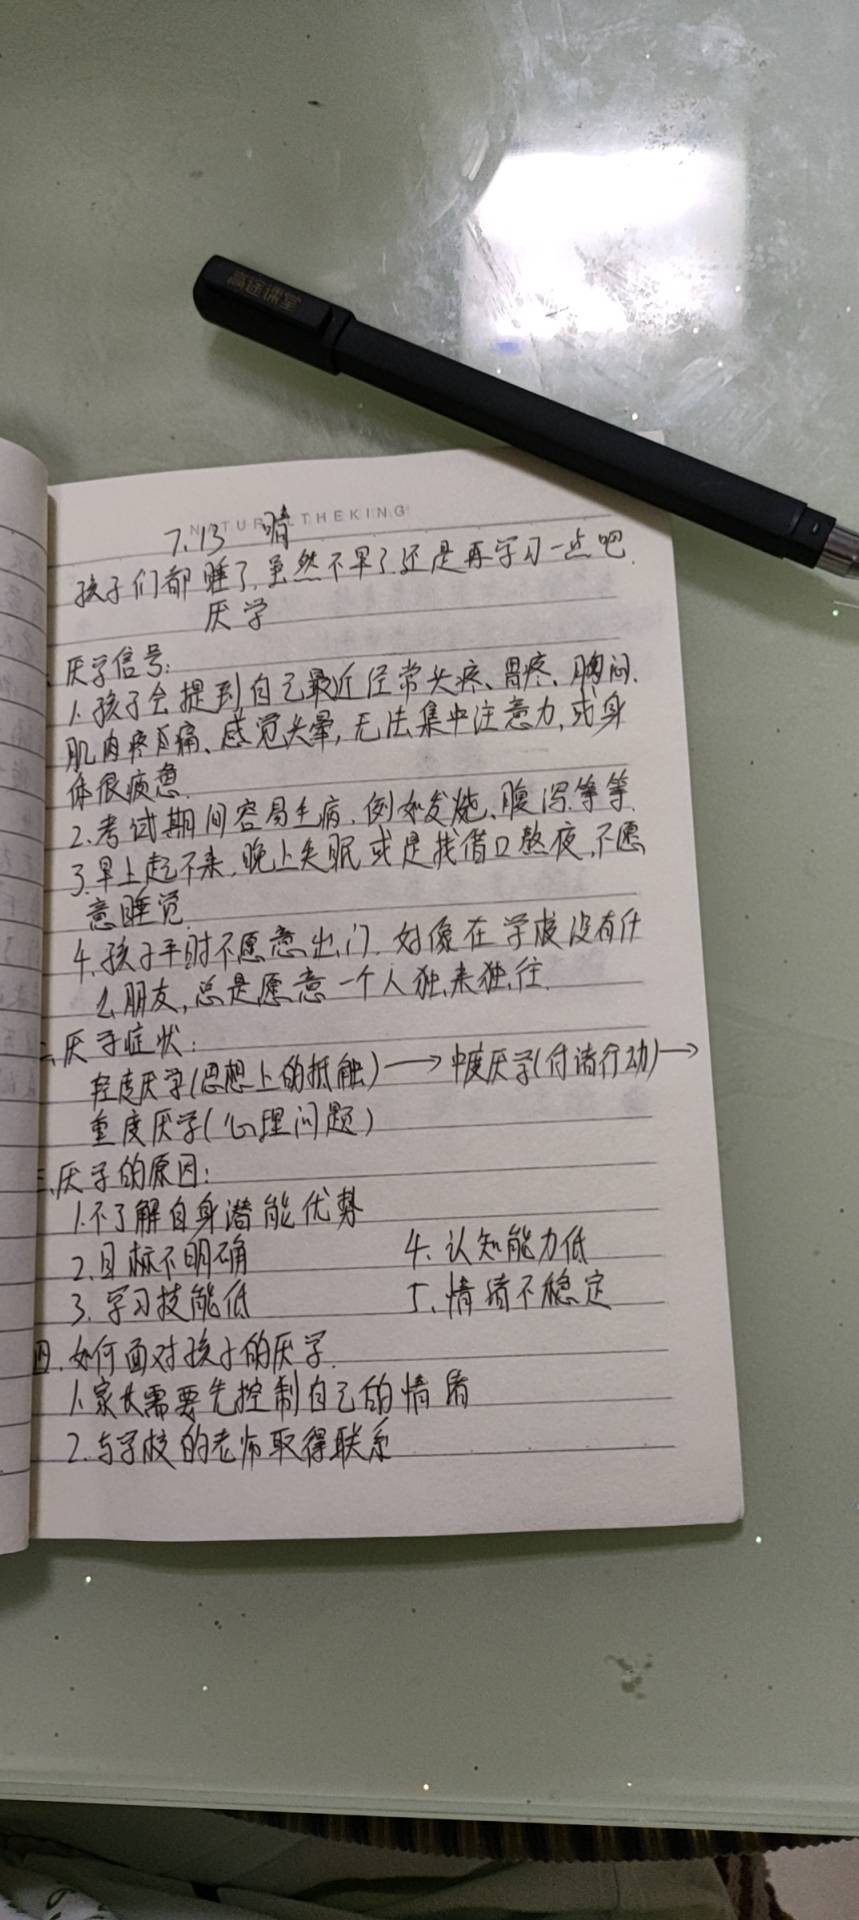 高途课堂
NATURE THEKING
7.13 晴
孩子们都睡了,虽然不早了还是再学习一点吧.
厌学
、厌学信号:
1.孩子会提到自己最近经常头疼、胃疼、胸闷.
肌肉疼痛、感觉头晕,无法集中注意力,或身
体很疲惫.
2.考试期间容易生病.例如发烧、腹泻等等.
3.早上起不来,晚上失眠或是找借口熬夜,不愿
意睡觉.
4.孩子平时不愿意出门.好像在学校没有什
么朋友,总是愿意一个人独来独往.
二、厌学症状:
轻度厌学(思想上的抵触)→中度厌学(付诸行动)→
重度厌学(心理问题)
三、厌学的原因:
1.不了解自身潜能优势
2.目标不明确 4.认知能力低
3.学习技能低 5.情绪不稳定
四.如何面对孩子的厌学.
1.家长需要先控制自己的情绪
2.与学校的老师取得联系